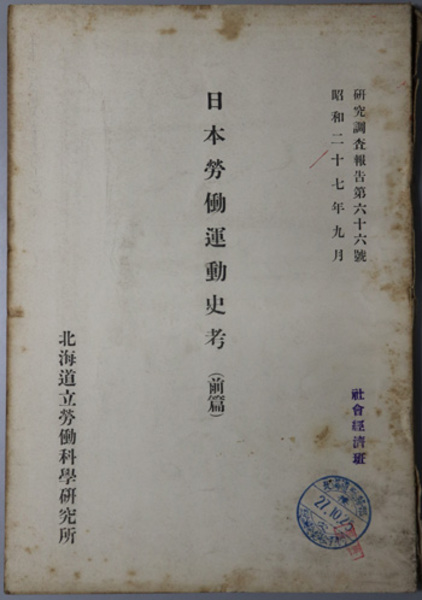 研究調査報告第六十六號
昭和二十七年九月
日本勞働運動史考(前篇)
北海道立勞働科學硏究所
社會經濟班
27.10.25